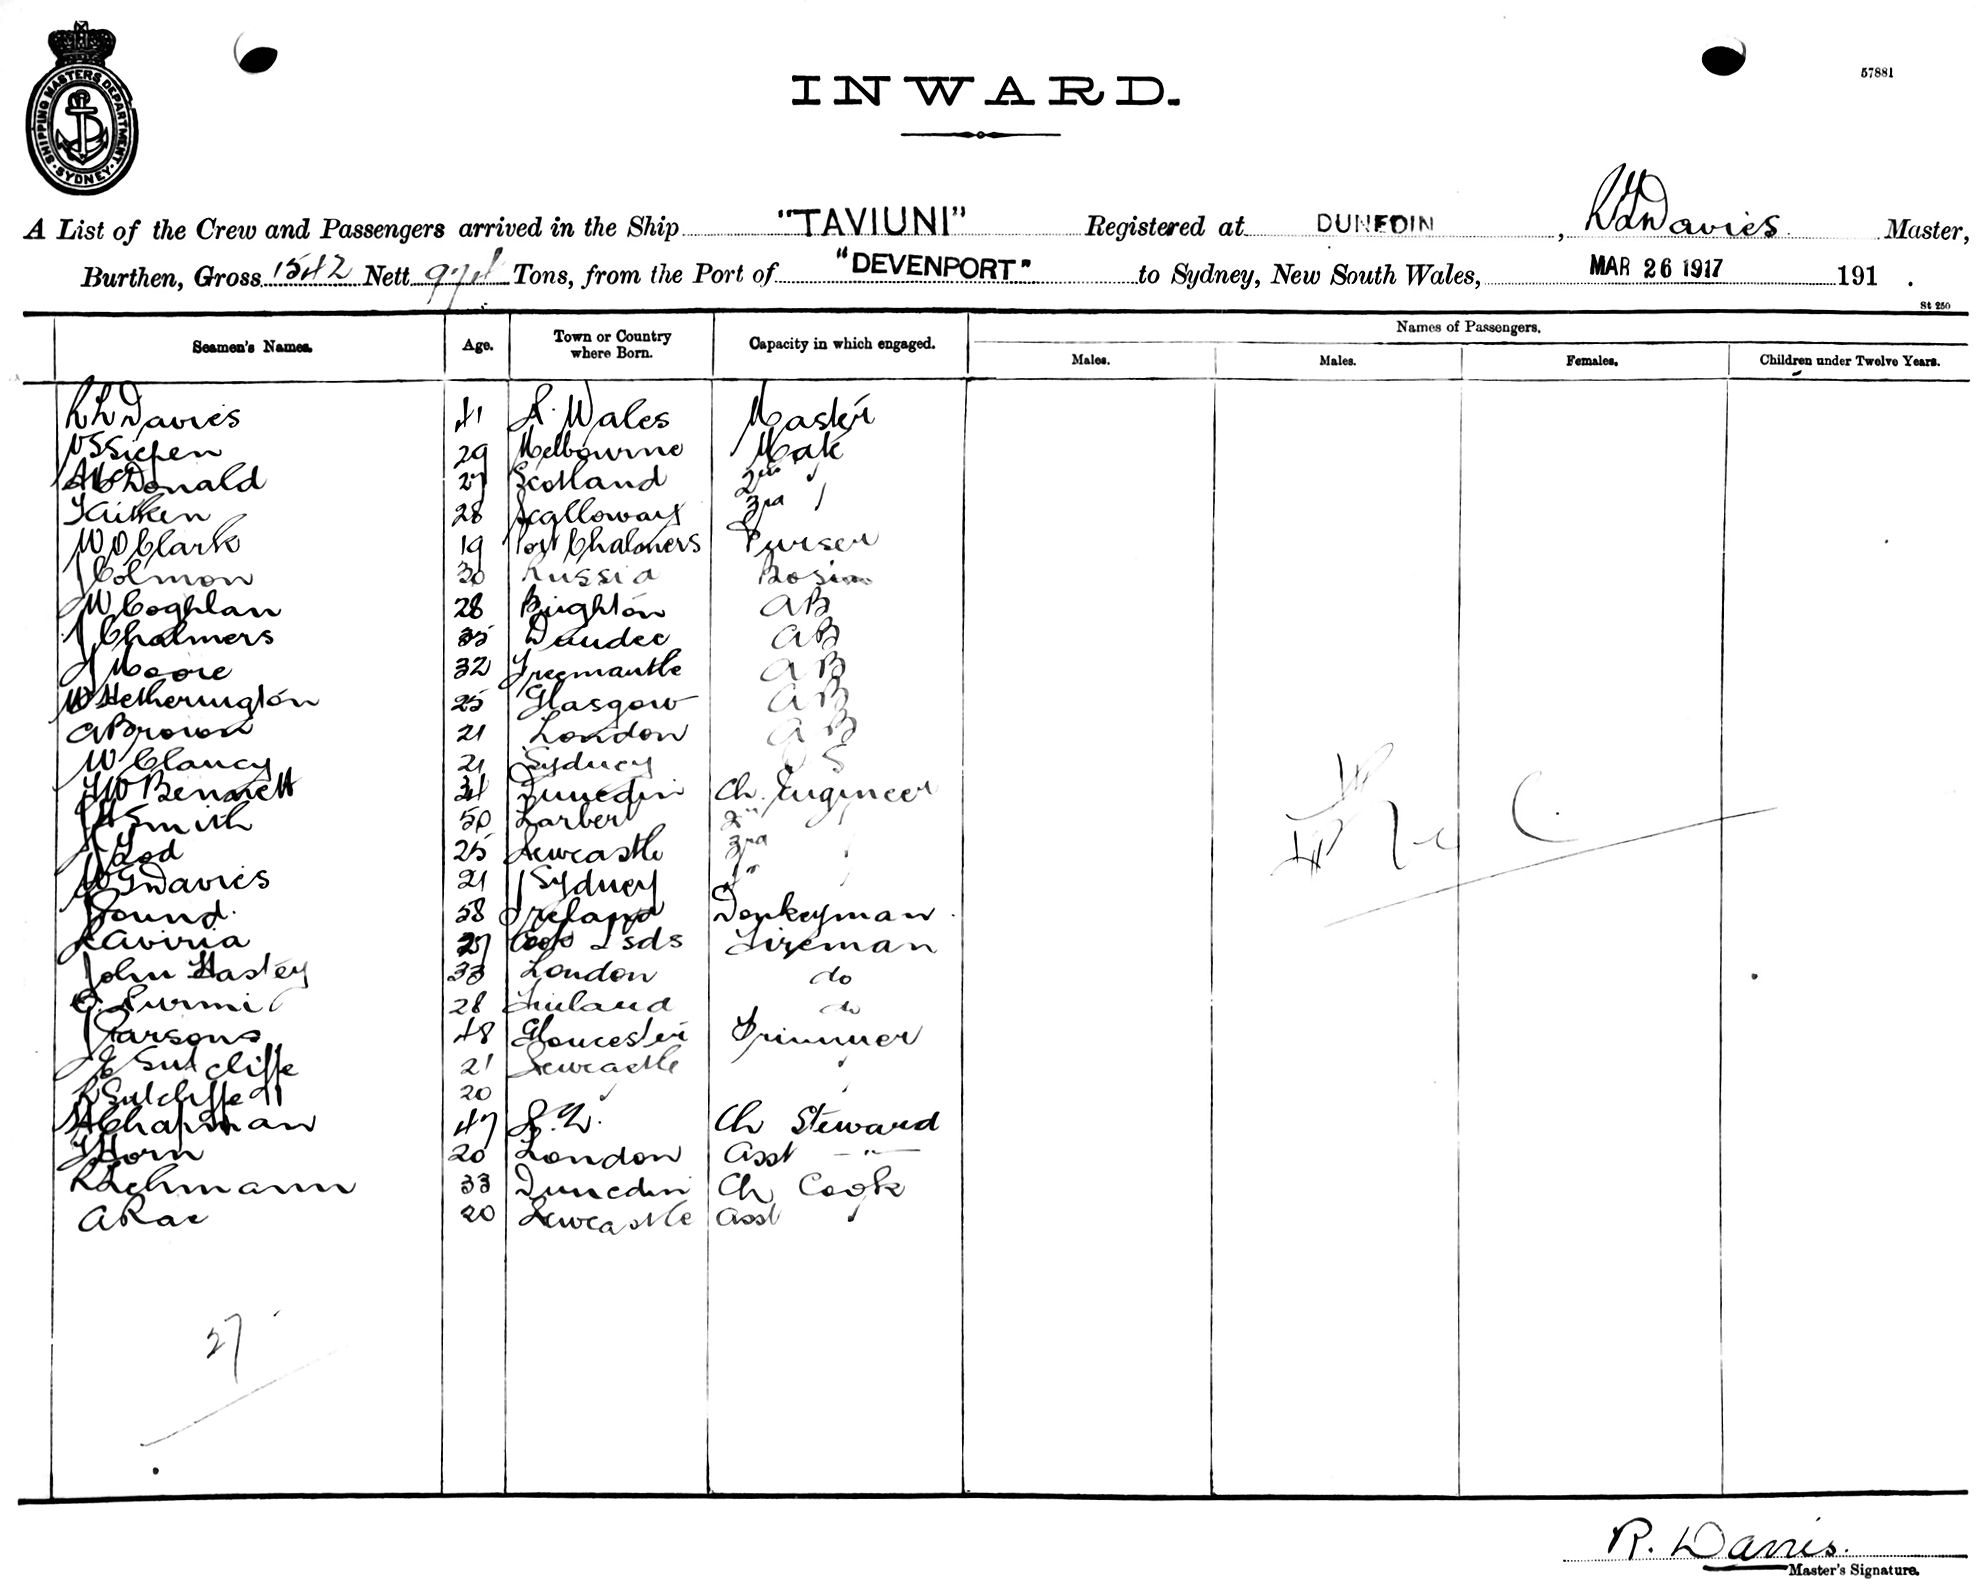 57881
SHIPPING MASTERS DEPARTMENT SYDNEY
INWARD.
A List of the Crew and Passengers arrived in the Ship "TAVIUNI" Registered at DUNEDIN, Davies Master,
Burthen, Gross 1542 Nett Tons, from the Port of "DEVENPORT" to Sydney, New South Wales, MAR 26 1917 191 .
St 250
Seamen's Names. Age. Town or Country where Born. Capacity in which engaged. Names of Passengers.
Males. Males. Females. Children under Twelve Years.
Davies 41 Wales Master
29 Melbourne Mate
A McDonald 27 Scotland 2nd "
Aitken 28 Scalloway 3rd "
W D Clark 19 Port Chalmers Purser
J Colmon 30 Russia Bosun
W Coghlan 28 Brighton AB
J Chalmers 35 Dundee AB
J Moore 32 Freemantle AB
W Hetherington 25 Glasgow AB
A Brown 21 London AB
W Clancy 21 Sydney O S
Bennett 34 Dunedin Ch. Engineer
Smith 50 Larbert 2nd
25 Newcastle 3rd "
W G Davies 21 Sydney 4th "
58 Ireland Donkeyman
27 Cook Isds Fireman
John Hastey 33 London do
28 Finland do
J Parsons 48 Gloucester Trimmer
J E Sutcliffe 21 Newcastle "
R Sutcliffe 20 " "
H Chapman 47 N.Z. Ch Steward
Horn 20 London Asst — " —
R Lehmann 33 Dunedin Ch Cook
A Rae 20 Newcastle Asst "
27
R. Davies.
Master's Signature.